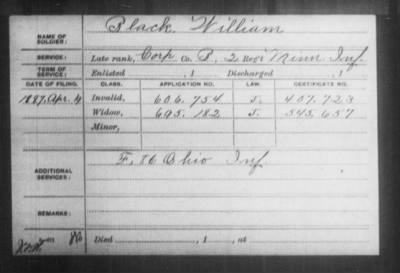 NAME OF SOLDIER: Black, William
SERVICE: Late rank, Corp Co. B, 2 Reg't Minn Inf.
TERM OF SERVICE: Enlisted , 1 Discharged , 1
DATE OF FILING. CLASS. APPLICATION NO. LAW. CERTIFICATE NO.
1887, Apr. 4 Invalid, 606.754 J. 407.723
Widow, 695.182 J. 543.657
Minor,
ADDITIONAL SERVICES: F, 86 Ohio Inf.
REMARKS:
Died , 1 , at